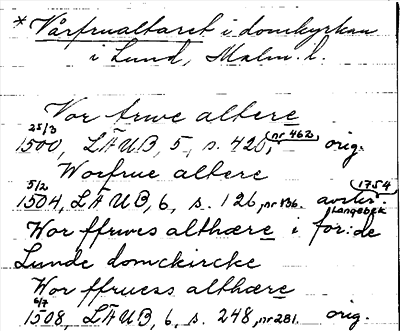 * Vårfrualtaret i domkyrkan
i Lund, Malm. l.
Vor frwe altere
25/3 1500, LÄUB, 5, s. 420, nr 462 orig.
Worfrue altere
5/2 1504, LÄUB, 6, s. 126, nr 136. avskr. 1754 Langebek
Wor ffruves althære i for:de
Lunde domckircke
Wor ffruess althære
6/7 1508, LÄUB, 6, s. 248, nr 281. orig.